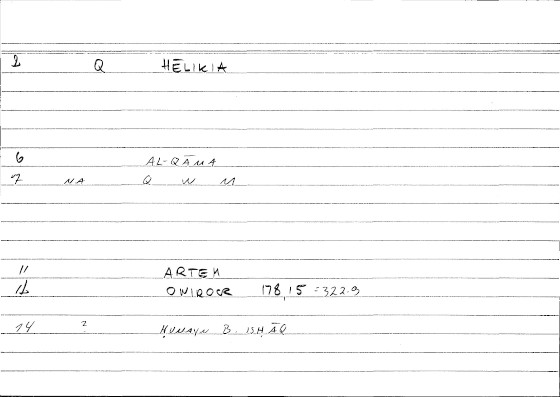 1 Q HĒLIKIA
6 AL-QĀMA
7 NA Q W M
11 ARTEM
12 ONIROCR 178,15 = 322.9
14 ? ḤUNAYN B. ISḤĀQ